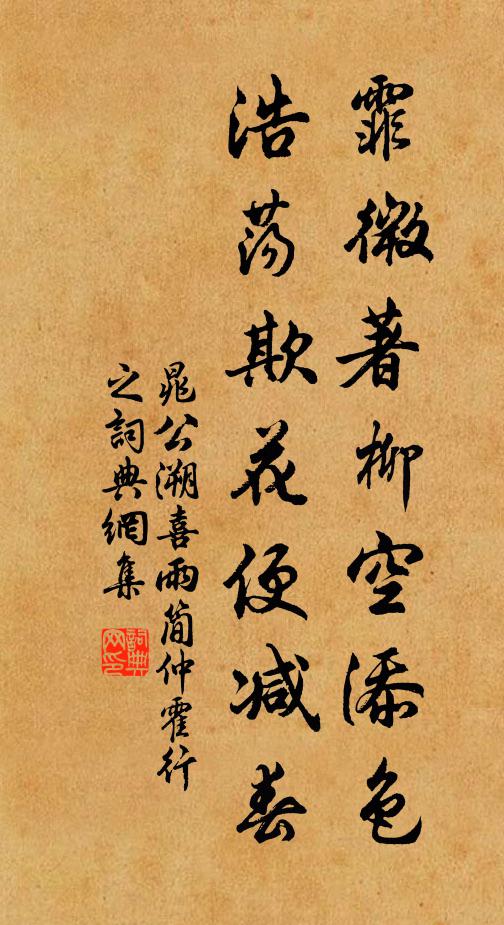 霏微著柳空添色
浩荡欺花便减春
晁公溯喜雨简仲霍行
之詞典網集
詞典网印